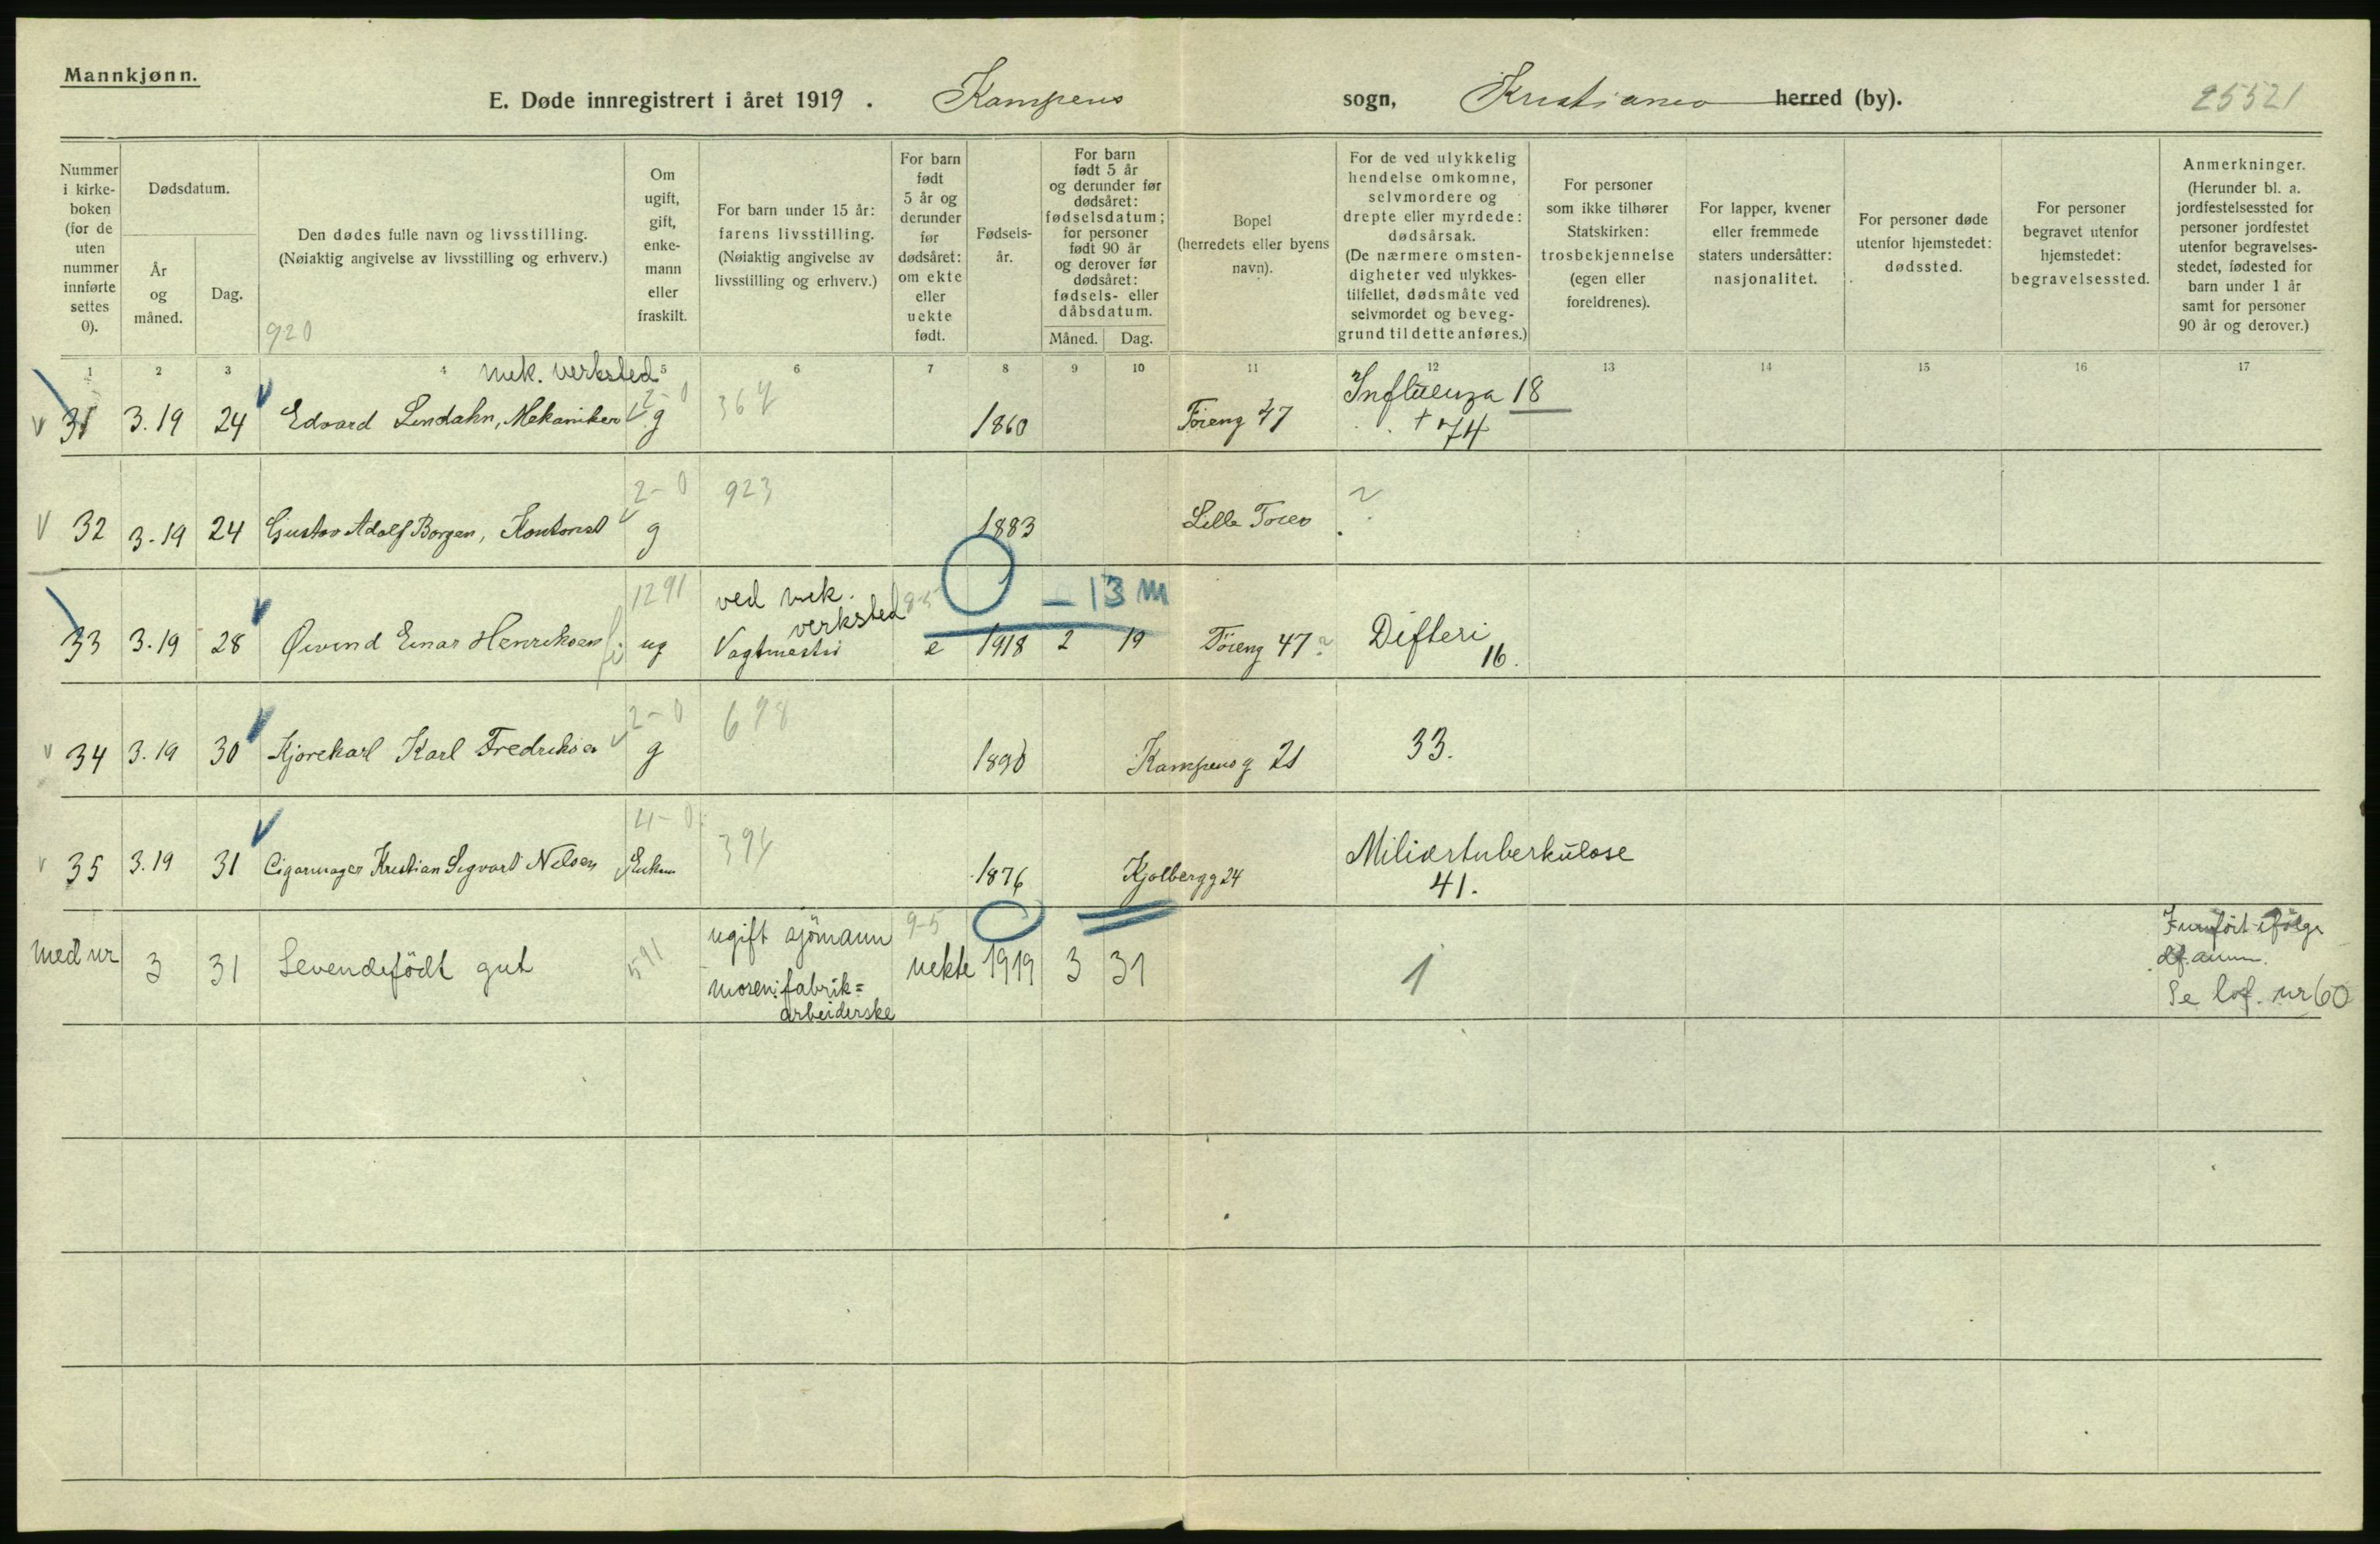 Mannkjønn.
E. Døde innregistrert i året 1919. Kampens sogn, Kristiania herred (by). 25521
Nummer i kirke-boken (for de uten nummer innførte settes 0).
Dødsdatum.
År og måned.
Dag.
Den dødes fulle navn og livsstilling.
(Nøiaktig angivelse av livsstilling og erhverv.)
920
Om ugift, gift, enke-mann eller fraskilt.
For barn under 15 år: farens livsstilling.
(Nøiaktig angivelse av livsstilling og erhverv.)
For barn født 5 år og derunder før dødsåret: om ekte eller uekte født.
Fødsels-år.
For barn født 5 år og derunder før dødsåret: fødselsdatum; for personer født 90 år og derover før dødsåret: fødsels- eller dåbsdatum.
Måned. Dag.
Bopel (herredets eller byens navn).
For de ved ulykkelig hendelse omkomne, selvmordere og drepte eller myrdede: dødsårsak.
(De nærmere omsten-digheter ved ulykkes-tilfellet, dødsmåte ved selvmordet og beveg-grund til dette anføres.)
For personer som ikke tilhører Statskirken: trosbekjennelse (egen eller foreldrenes).
For lapper, kvener eller fremmede staters undersåtter: nasjonalitet.
For personer døde utenfor hjemstedet: dødssted.
For personer begravet utenfor hjemstedet: begravelsessted.
Anmerkninger.
(Herunder bl. a. jordfestelsessted for personer jordfestet utenfor begravelses-stedet, fødested for barn under 1 år samt for personer 90 år og derover.)
1 2 3 4 5 6 7 8 9 10 11 12 13 14 15 16 17
mek. verksted
31 3.19 24 Edvard Lindahn, Mekaniker 2-0 g 364 1860 Töieng 47 Influenza 18
+ 74
32 3-19 24 Gustav Adolf Borgen, Kontorist 2-0 g 923 1883 Lille Töien ?
1291 ved mek. verksted 9-5 - 13 m
33 3.19 28 Øivind Einar Henriksen ug Vagtmester e 1918 2 19 Töieng 47 ? Difteri 16.
34 3.19 30 Kjørekarl Karl Fredriksen 2-0 g 698 1890 Kampens g 21 33.
35 3.19 31 Cigarmager Kristian Sigvart Nilsen 4-0 Enkem 394 1876 Kjølbergg 24 Miliærtuberkulose
41.
med nr 3 31 Levendefödt gut 591 ugift sjömann 9-5 uekte 1919 3 31 1
moren: fabrik=
arbeiderske
ifölge
df. anm.
Se lof. nr 60